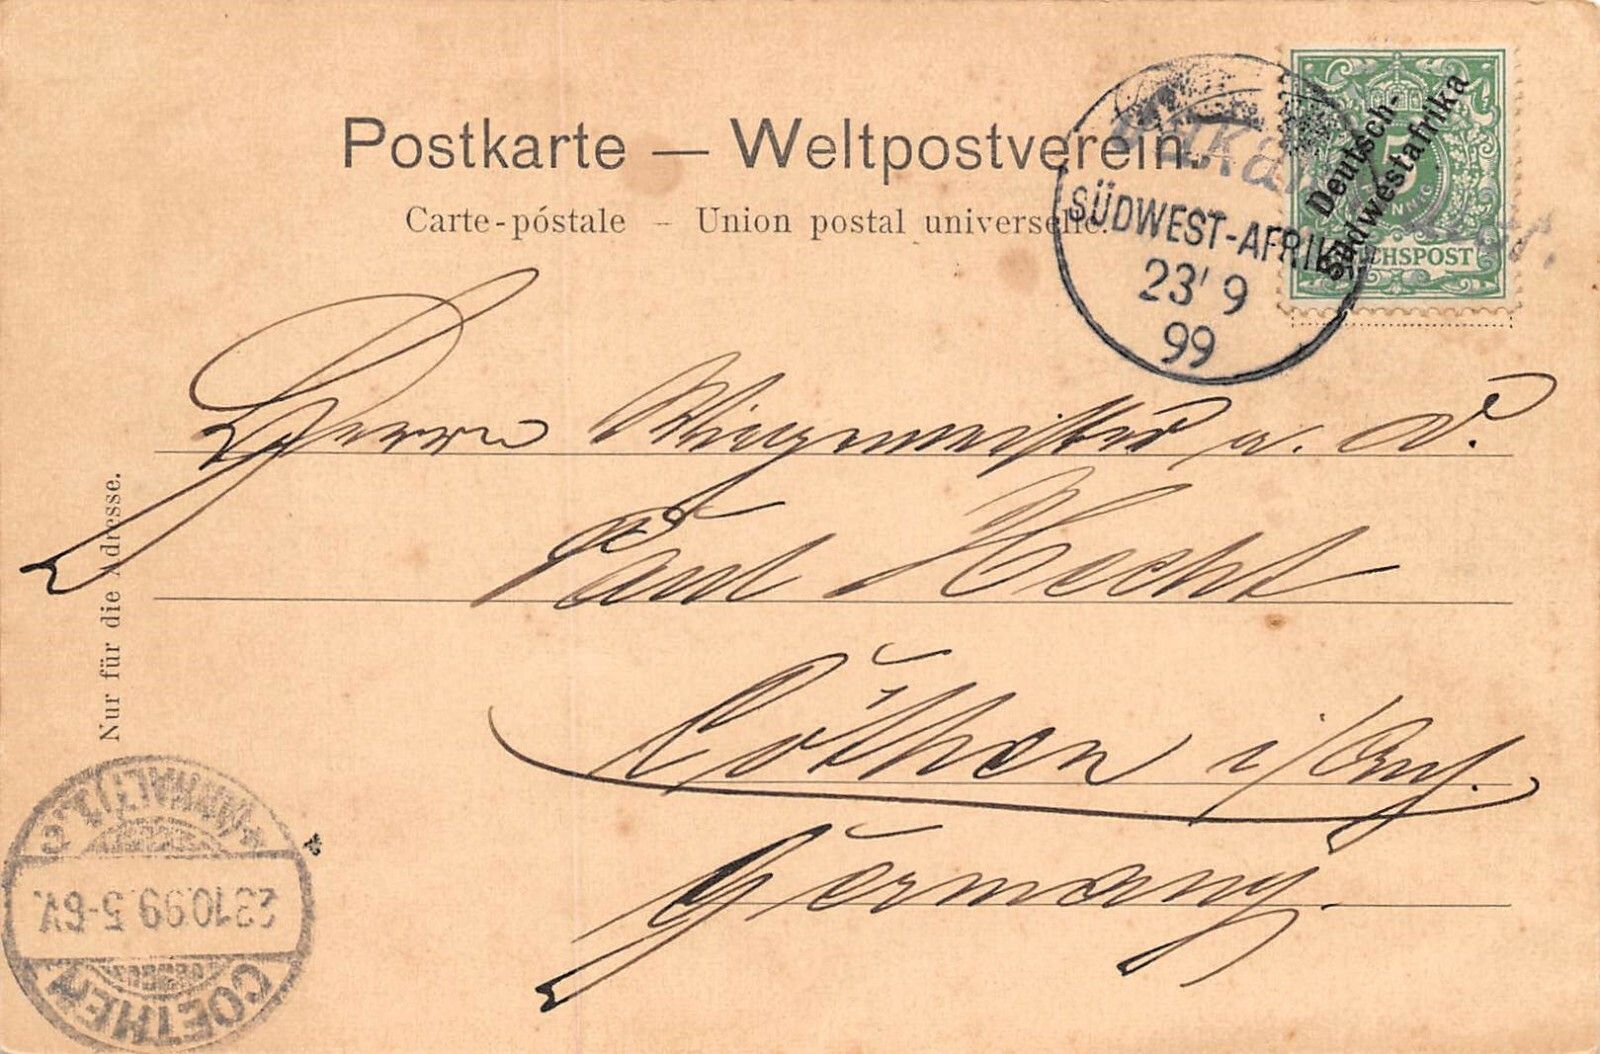 Postkarte — Weltpostverein.
Carte-póstale – Union postal universelle.
SÜDWEST-AFRIKA
23' 9
99
Deutsch-
Südwestafrika
5
PFENNIG
REICHSPOST
Herrn a. D.
Paul Hecht
Cöthen i/Anh.
Germany.
Nur für die Adresse.
COETHEN
23.10.99.5-6V.
*(ANHALT)1.c